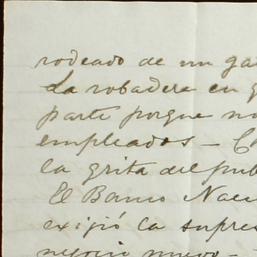 rodeado de un ga
La robadera en g
parte porque no
empleados — C
la grita del pub
El Banco Naci
exijió la supres
negocio nuevo —